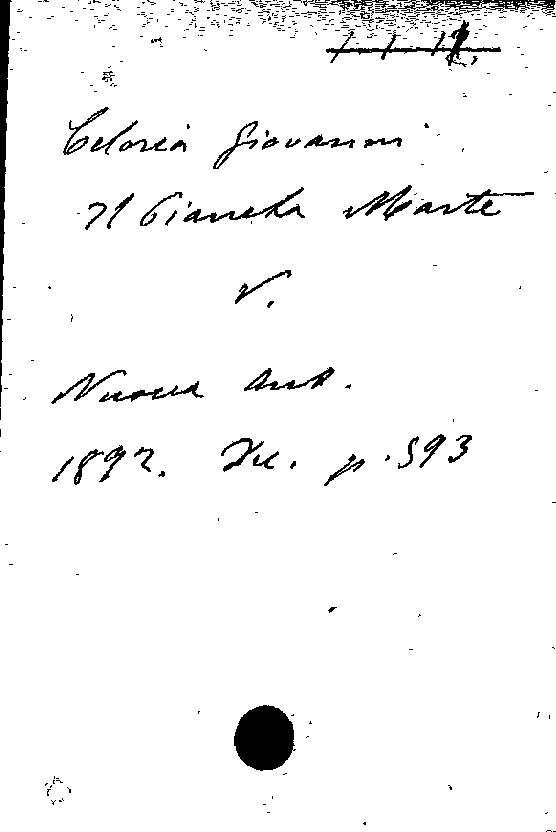 Celoria Giovanni
Il Pianeta Marte
V.
Nuova Ant.
1892. p. 593